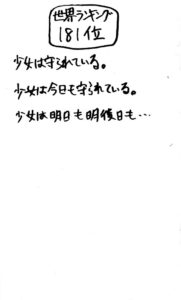 世界ランキング
181位
少女は守られている。
少女は今日も守られている。
少女は明日も明後日も…